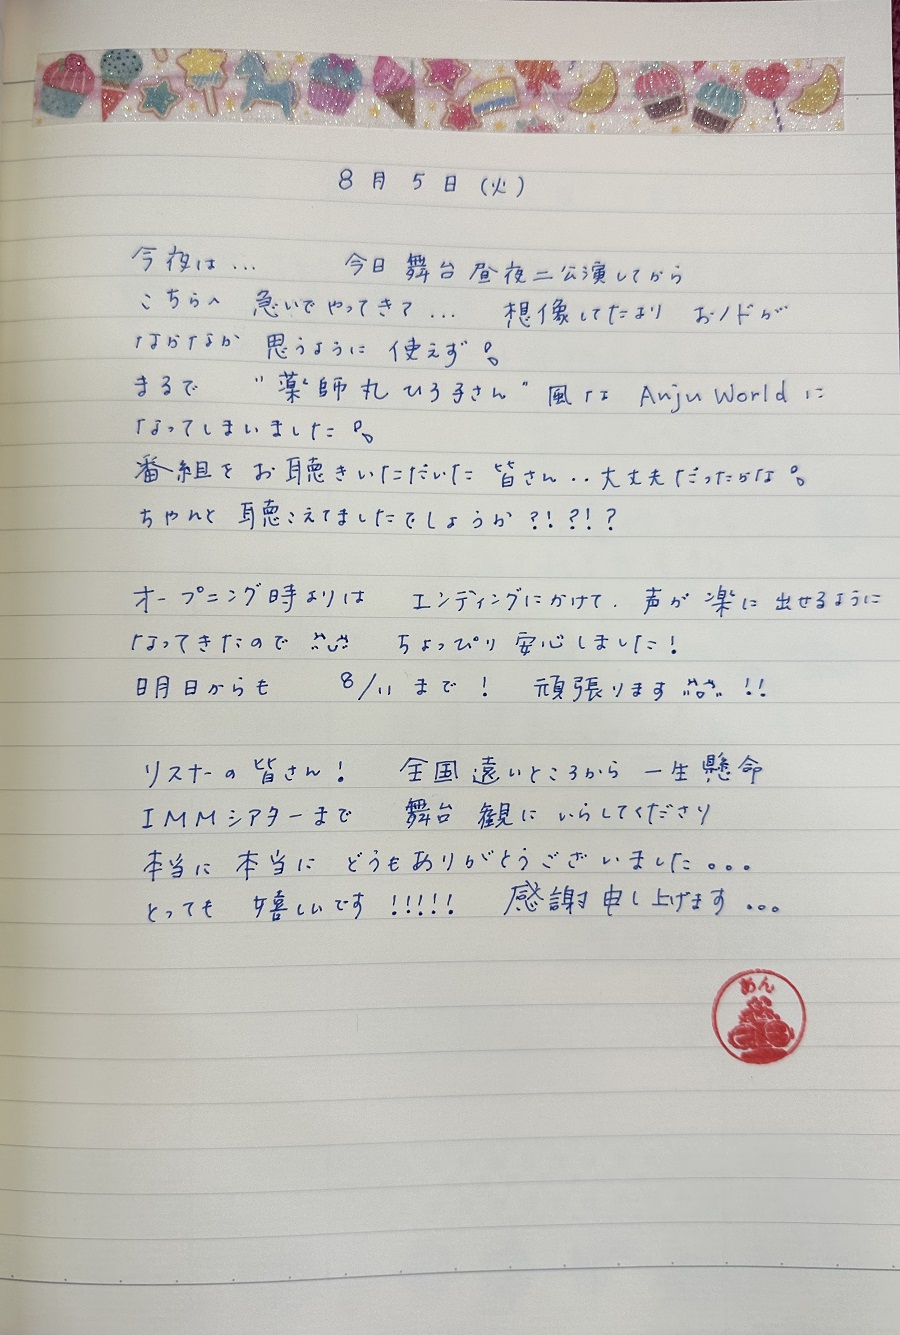 8月5日(火)
今夜は... 今日 舞台 昼夜二公演してから
こちらへ 急いでやってきて... 想像してたより おノドが
なかなか 思うように 使えず。
まるで "薬師丸ひろ子さん" 風な Anju Worldに
なってしまいました。
番組を お聴きいただいた 皆さん.. 大丈夫だったかな。
ちゃんと 聴こえてましたでしょうか?!?!?
オープニング時よりは エンディングにかけて. 声が 楽に 出せるように
なってきたので ちょっぴり 安心しました!
明日からも 8/11 まで! 頑張ります !!
リスナーの 皆さん! 全国 遠いところから 一生懸命
IMMシアターまで 舞台 観に いらしてくださり
本当に 本当に どうもありがとうございました。。。
とっても 嬉しいです !!!!! 感謝申し上げます 。。。
めん